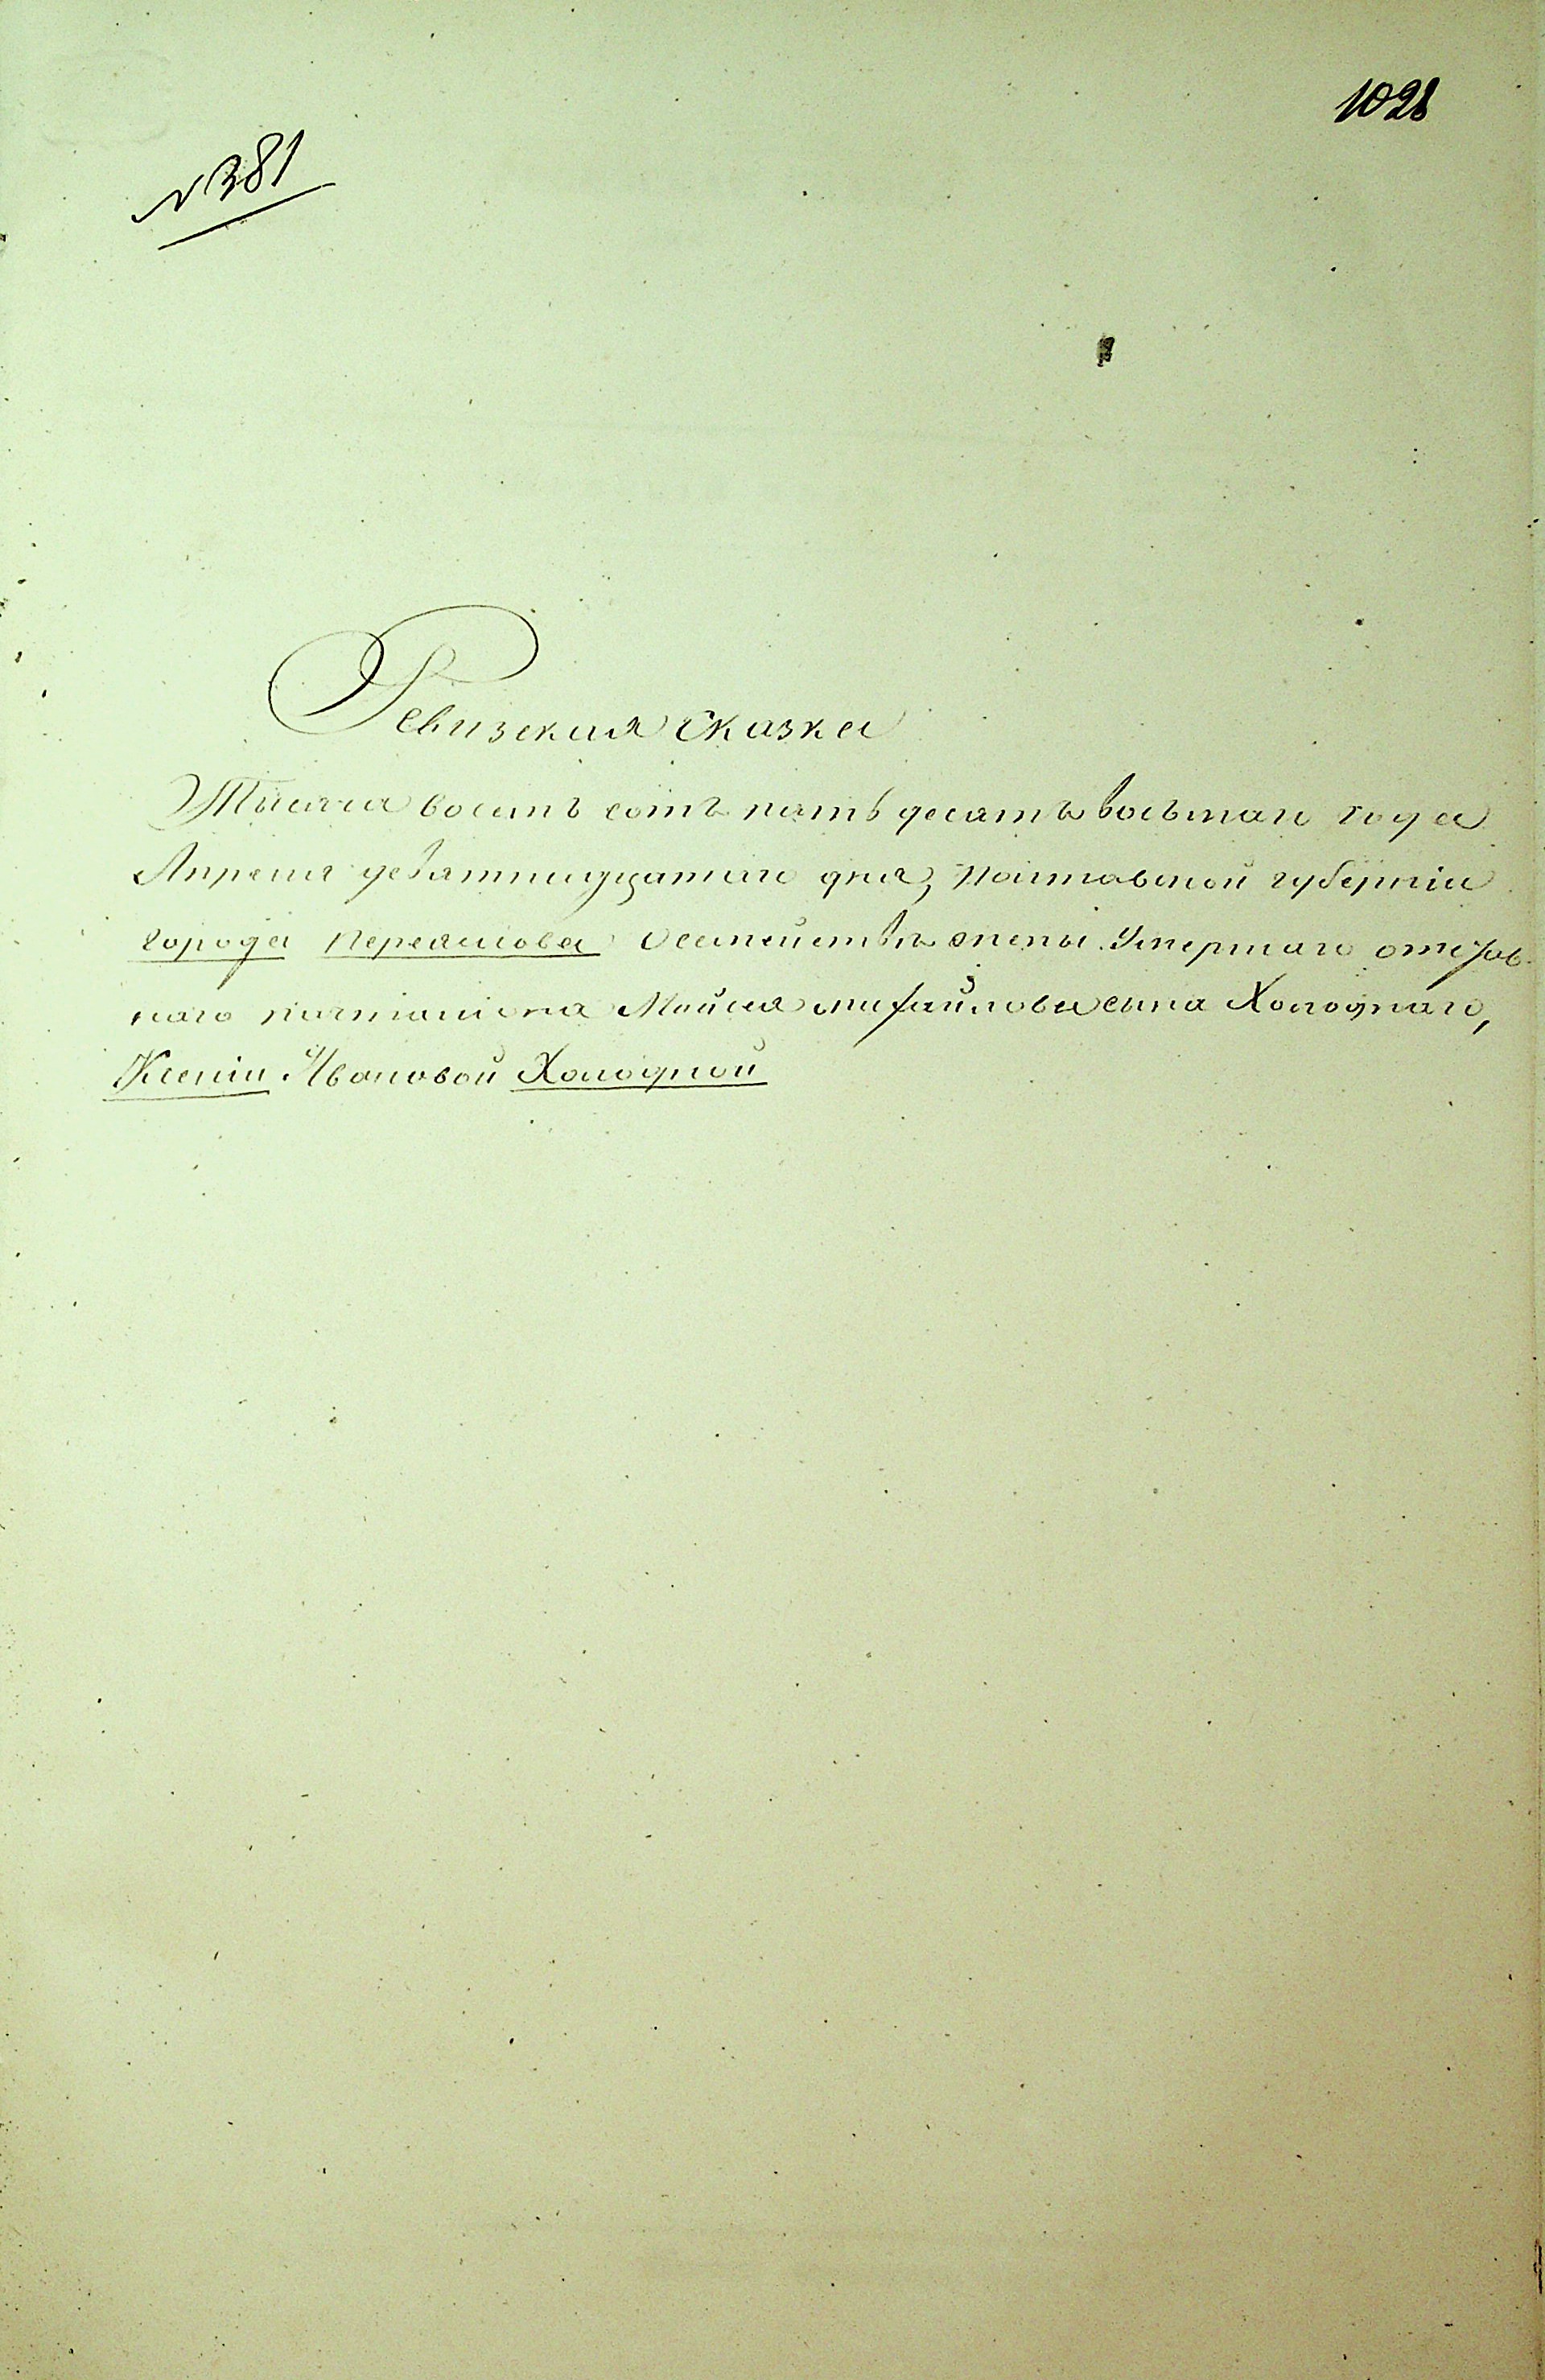 1028
№ 381
Ревизская сказка
Тысяча восемь сотъ пять десятъ восьмаго года
Апреля девятнадцатаго дня, Полтавской губернiи
города Переяслова О семействѣ жены Умершаго
наго Мойсея Михайлова сына Холоднаго,
Ксенiи Ивановой Холодной